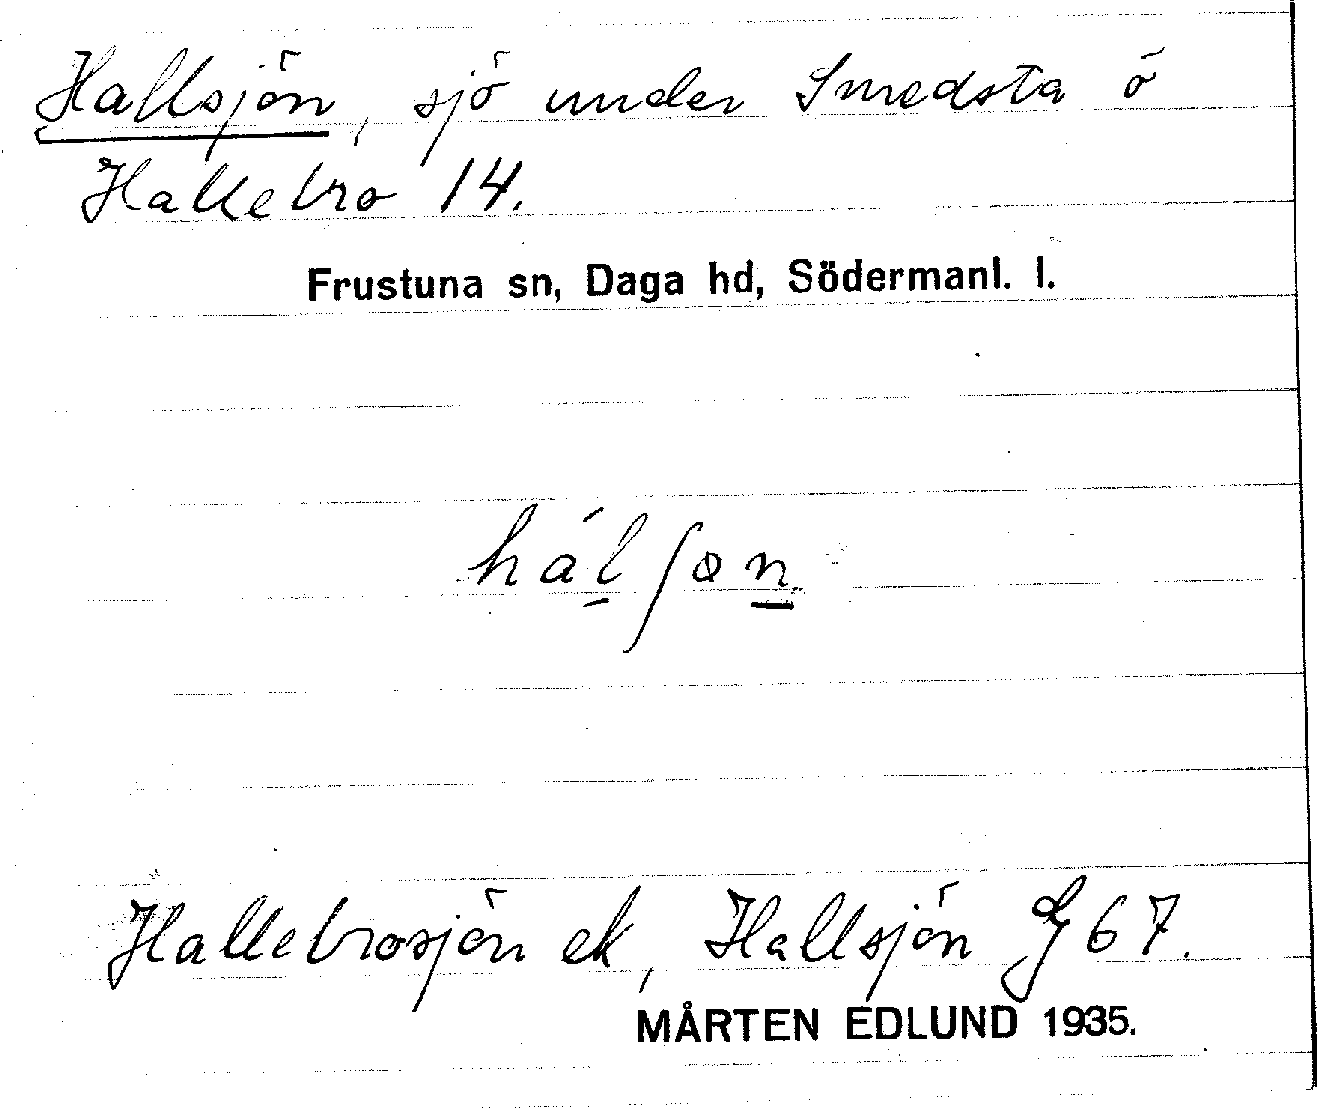 Hallsjön, sjö under Smedsta o
Hallebro 14.
Frustuna sn, Daga hd, Södermanl. l.
hálʃøn
Hallebrosjön ek, Hallsjön G 67.
MÅRTEN EDLUND 1935.